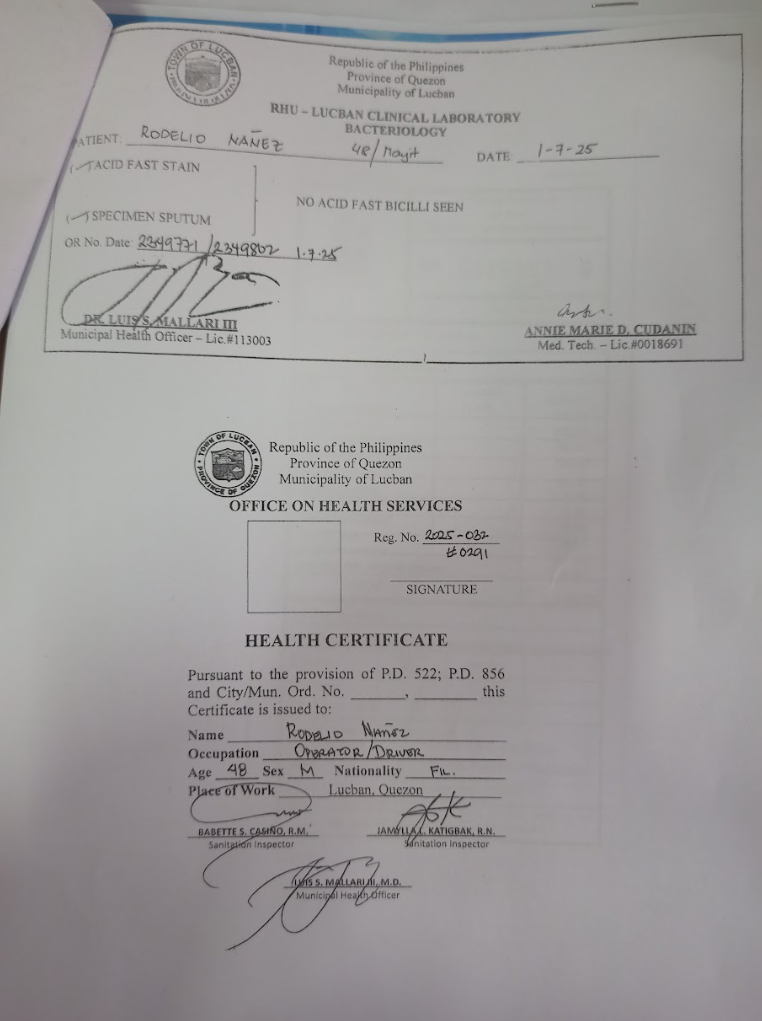 TOWN OF LUCBAN
Republic of the Philippines
Province of Quezon
Municipality of Lucban
RHU – LUCBAN CLINICAL LABORATORY
BACTERIOLOGY
PATIENT: RODELIO NAÑEZ 48/ DATE 1-7-25
ACID FAST STAIN
NO ACID FAST BICILLI SEEN
SPECIMEN SPUTUM
OR No. Date: 2349771/2349802 1.7.25
DR. LUIS S. MALLARI III
Municipal Health Officer – Lic.#113003
ANNIE MARIE D. CUDANIN
Med. Tech. – Lic.#0018691
TOWN OF LUCBAN
PROVINCE OF QUEZON
Republic of the Philippines
Province of Quezon
Municipality of Lucban
OFFICE ON HEALTH SERVICES
Reg. No. 2025-032
#0291
SIGNATURE
HEALTH CERTIFICATE
Pursuant to the provision of P.D. 522; P.D. 856
and City/Mun. Ord. No. ______, ________ this
Certificate is issued to:
Name RODELIO NAÑEZ
Occupation OPERATOR/DRIVER
Age 48 Sex M Nationality FIL.
Place of Work Lucban, Quezon
BABETTE S. CASIÑO, R.M. KATIGBAK, R.N.
Sanitation Inspector Sanitation Inspector
LUIS S. MALLARI III, M.D.
Municipal Health Officer